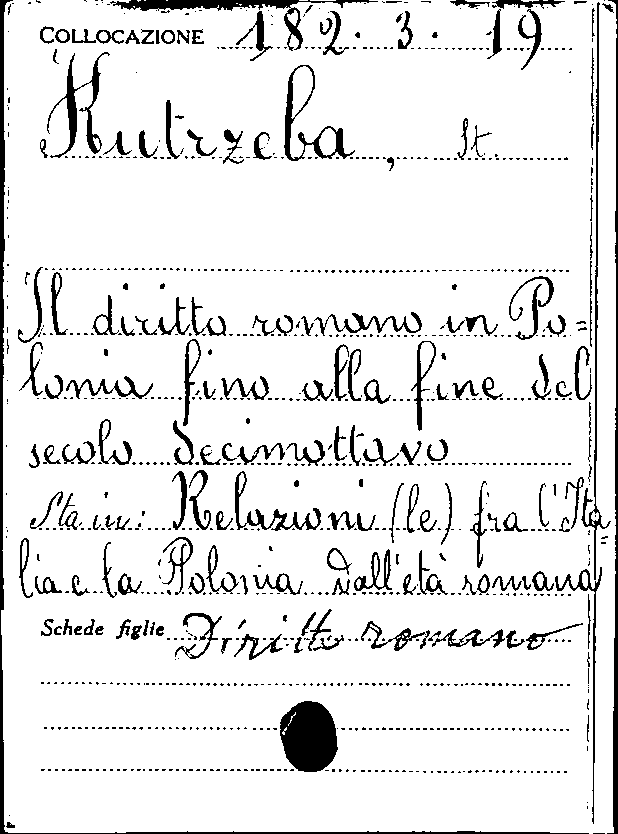 COLLOCAZIONE 182. 3. 19
Kutrzeba, St.
Il diritto romano in Po=
lonia fino alla fine del
secolo decimottavo
Sta in: Relazioni (le) fra l'Ita=
lia e la Polonia dall'età romana
Schede figlie Diritto romano